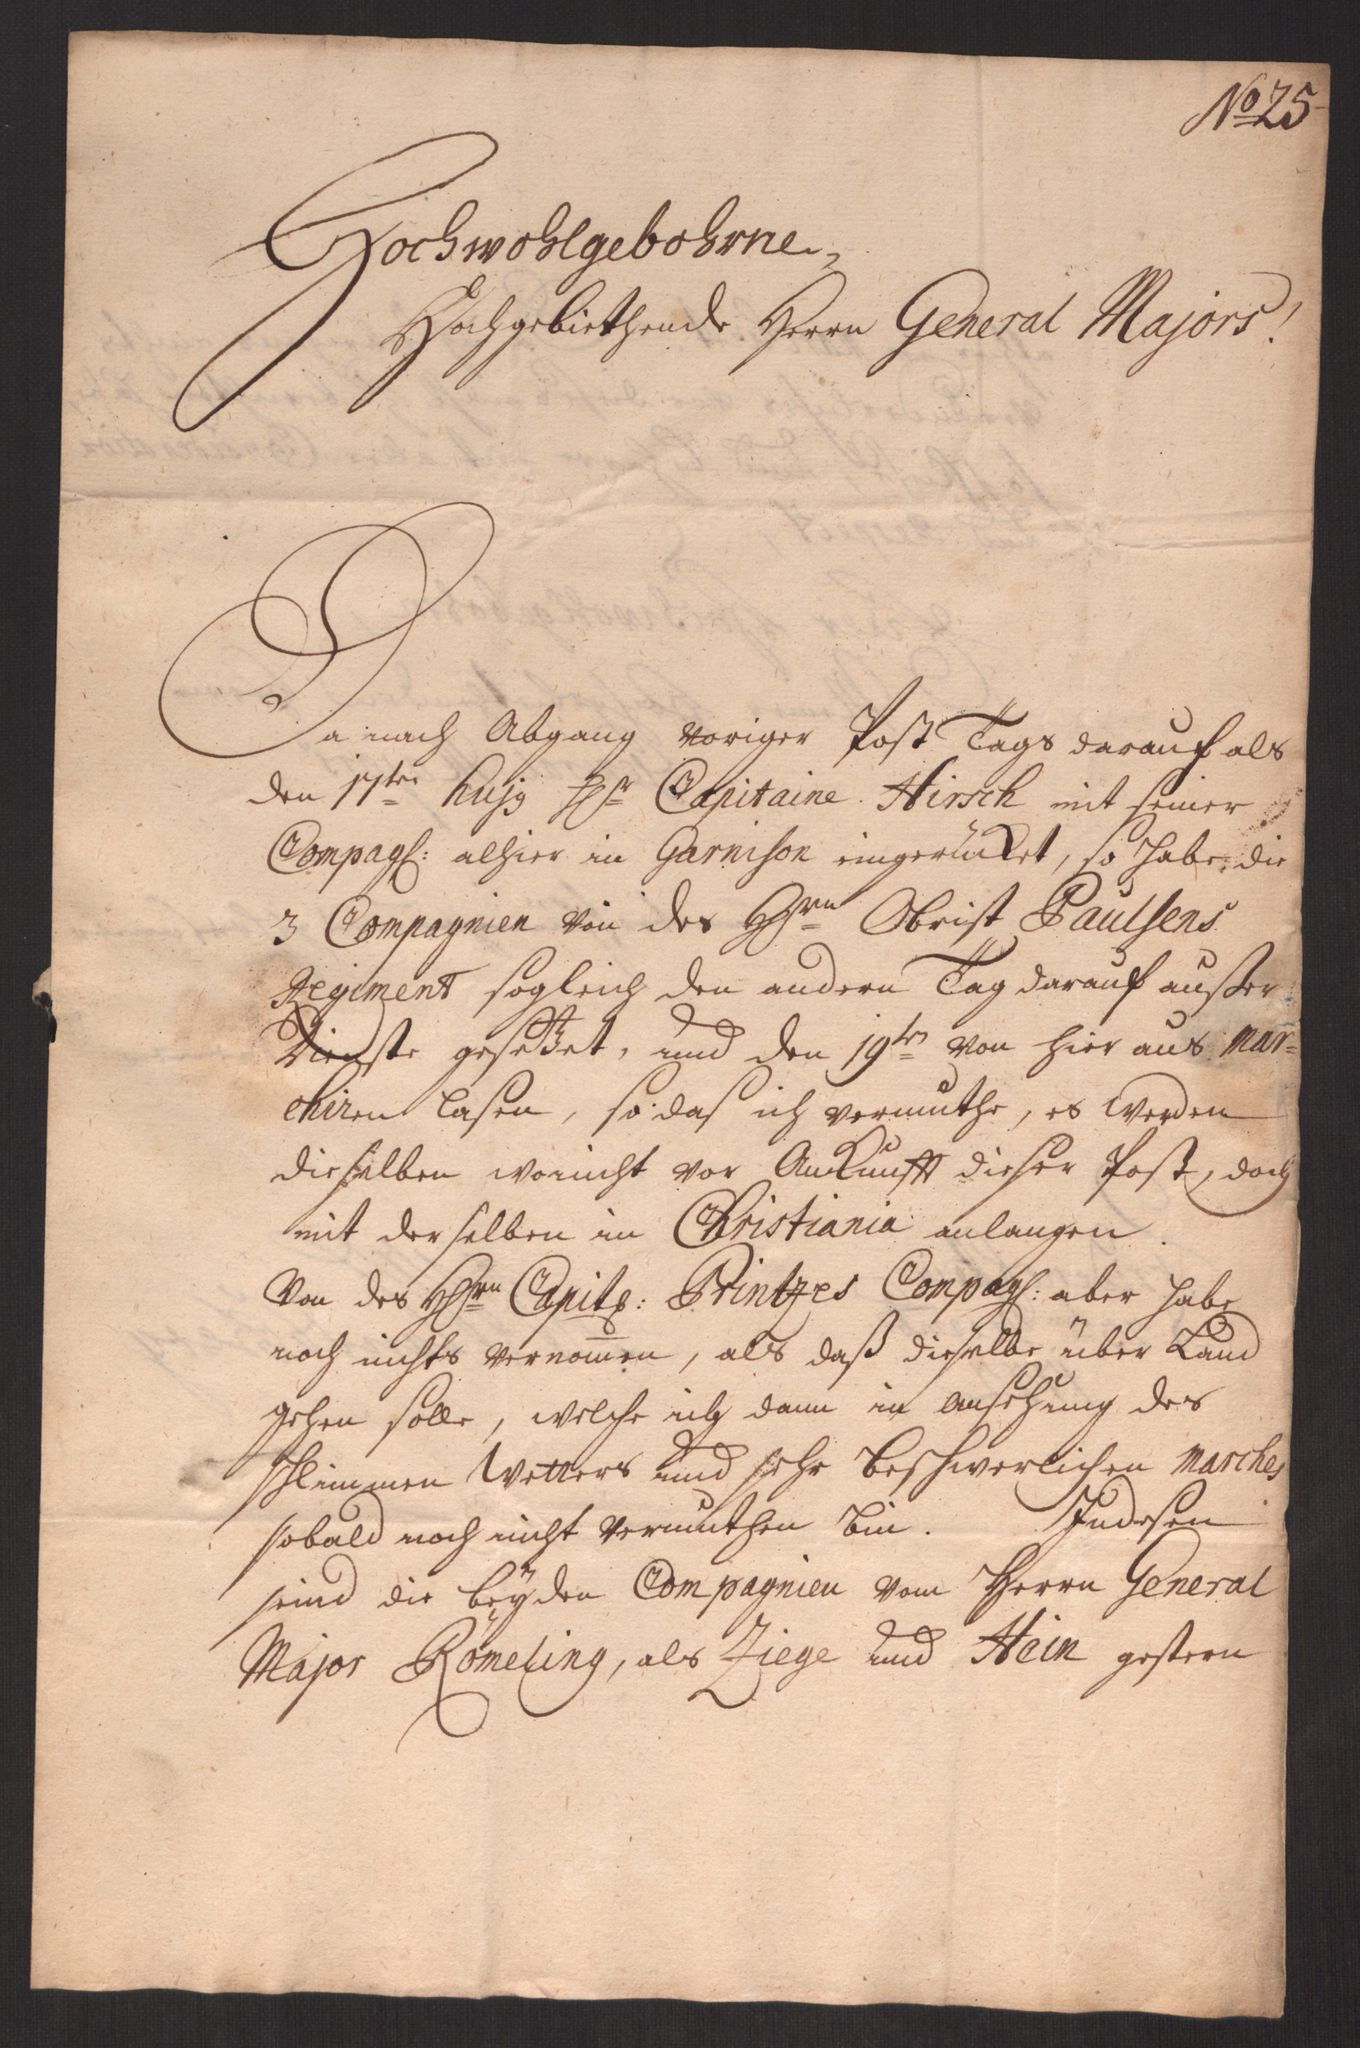 No 25
Hochwohlgebohrne,
Hochgebiethende Herrn General Majors!
Da nach Abgang voriger Post Tags darauf als
den 17ten hujg Hr Capitaine Hirsch mit seiner
Compagl: alhier in Garnison eingerücket, so habe die
3 Compagnien von des Hrn Obrist Paulsens
Regiment sogleich den andern Tag darauf außer
Dienste gesetzet, und den 19ten von hier aus mar=
chiren lasen, so das ich vermuthe, es werden
dieselben wo nicht vor Ankunfft dieser Post, doch
mit derselben in Christiania anlangen.
Von des Hrn Capits: Printzes Compagl: aber habe
noch nichts vernomen, als daß dieselbe über Land
gehen solle, welche ich dann in ansehung des
schlimmen Wetters und sehr beschwerlichen marches
sobald noch nicht vermuthen bin. Indesen
seind die beÿden Compagnien vom Herrn General
Major Römeling, als Ziege und Hein gestern